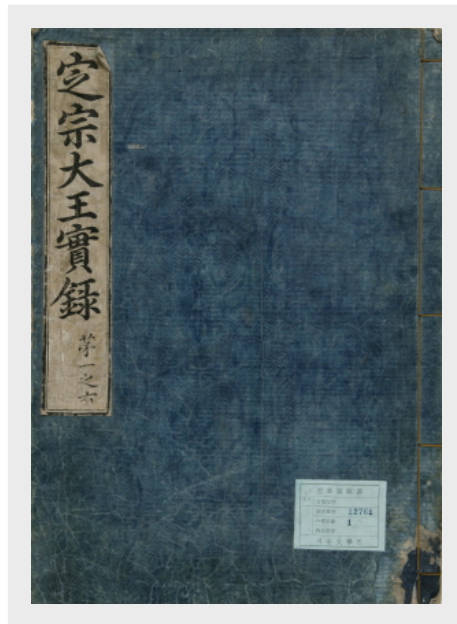 定宗大王實錄
第一之六
12764
1